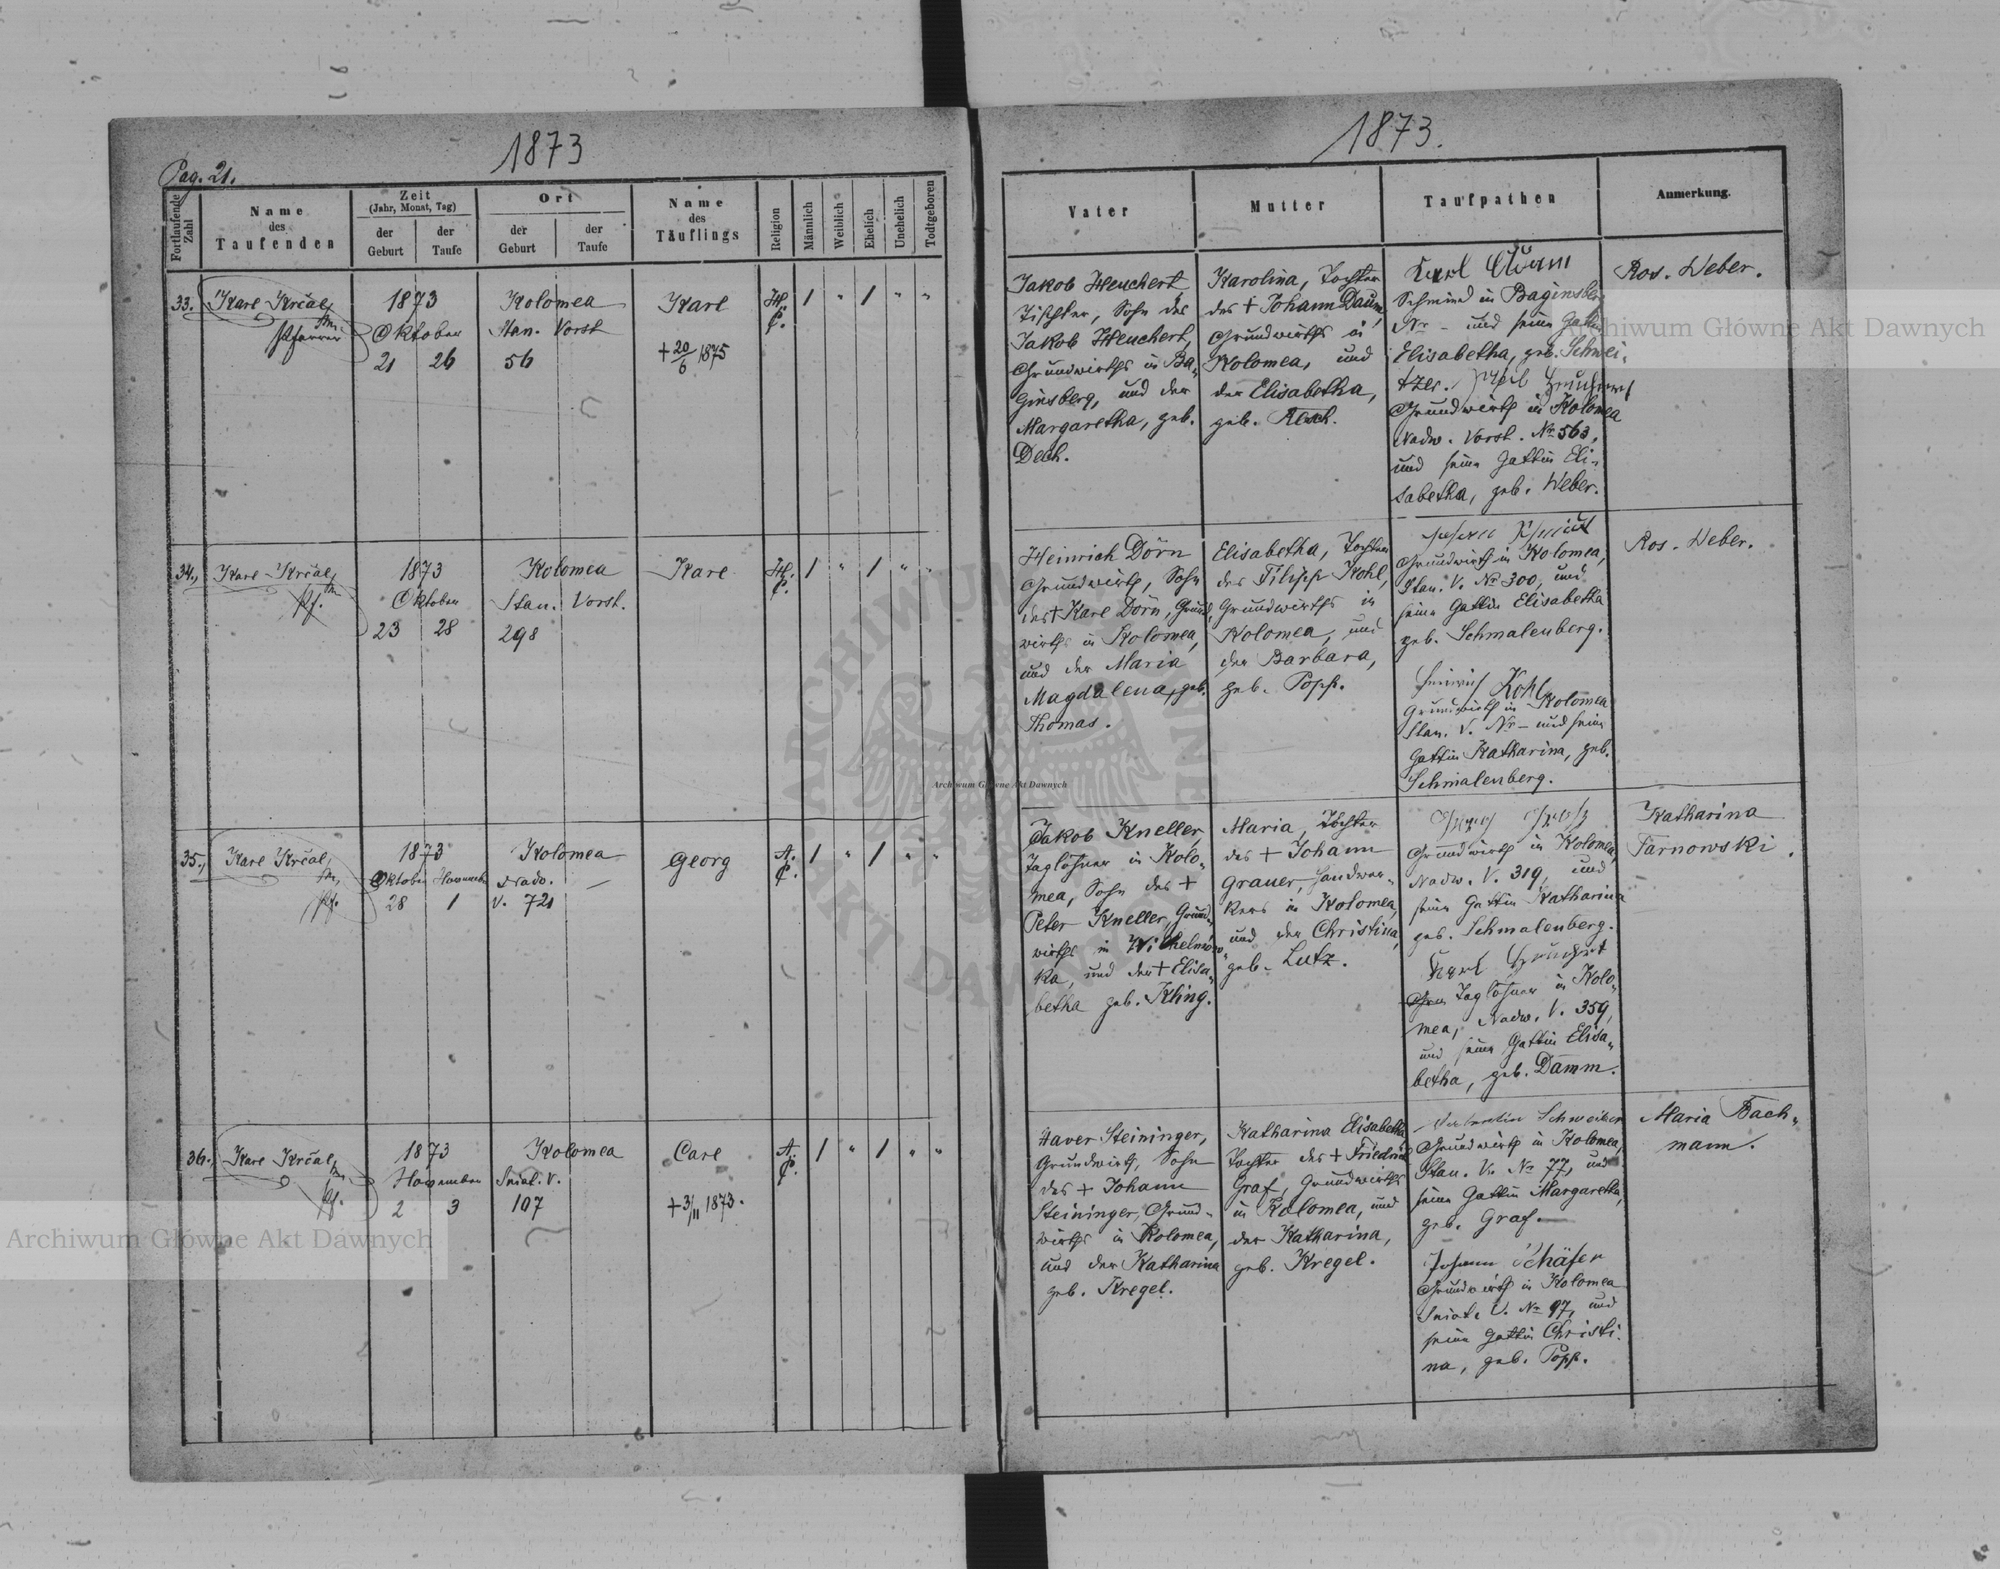 1873
Pag. 21.
Fortlaufende Zahl
Name des Taufenden
Zeit
(Jahr, Monat, Tag)
der Geburt
der Taufe
Ort
der Geburt
der Taufe
Name des Täuflings
Religion
Männlich
Weiblich
Ehelich
Unehelich
Todtgeboren
33.
Karl Krčal,
Pfarrer
1873
Oktober
21 26
Kolomea
Stan. Vorst
56
Karl
+ 20/6 1875
H.
C.
/ " / " "
34.,
Karl Krčal,
Pf.
1873
Oktober
23 28
Kolomea
Stan. Vorst.
298
Karl
H.
C.
/ " / " "
35.,
Karl Krčal,
Pf.
1873
Oktober November
28 1
Kolomea
Nadw.
V. 721
Georg
A.
C.
/ " / " "
36.,
Karl Krčal,
Pf.
1873
November
2 3
Kolomea
Sniat. V.
107
Carl
+ 3/11 1873.
A.
C.
/ " / " "
1873.
Vater
Mutter
Taufpathen
Anmerkung.
Jakob Heuchert,
Tischler, Sohn des
Jakob Heuchert,
Grundwirths in Ba-
ginsberg, und der
Margaretha, geb.
Dech.
Karolina, Tochter
des + Johann Daum,
Grundwirths in
Kolomea, und
der Elisabetha,
geb.
Karl
Schmied in Baginsberg
Nr - und seine Gattin
Elisabetha, geb. Schwei-
tzer.
Grundwirth in Kolomea
Nadw. Vorst. Nr 563,
und seine Gattin Eli-
sabetha, geb. Weber.
Ros. Weber.
Heinrich Dörn
Grundwirth, Sohn
des + Karl Dörn, Grund-
wirths in Kolomea,
und der Maria
Magdalena, geb.
Thomas.
Elisabetha, Tochter
des Filipp Kohl,
Grundwirths in
Kolomea, und
der Barbara,
geb. Popp.
Grundwirth in Kolomea,
Stan. V. Nr 300, und
seine Gattin Elisabetha
geb. Schmalenberg.
Heinrich Kohl
Grundwirth in Kolomea
Stan. V. Nr - und seine
Gattin Katharina, geb.
Schmalenberg.
Ros. Weber.
Jakob Kneller,
Taglöhner in Kolo-
mea, Sohn des +
Peter Kneller, Grund-
wirths in Wilhelmów-
ka, und der + Elisa-
betha geb. Kling.
Maria, Tochter
des + Johann
Grauer, Handwer-
kers in Kolomea,
und der Christina,
geb. Lutz.
Grundwirth in Kolomea,
Nadw. V. 319, und
seine Gattin Katharina
geb. Schmalenberg.
Karl Heuchert
Taglöhner in Kolo-
mea, Nadw. V. 359,
und seine Gattin Elisa-
betha, geb. Damm.
Katharina
Tarnowski.
Xaver Steininger,
Grundwirth, Sohn
des + Johann
Steininger, Grund-
wirths in Kolomea,
und der Katharina
geb. Kregel.
Katharina Elisabetha
Tochter des + Friedrich
Graf, Grundwirths
in Kolomea, und
der Katharina,
geb. Kregel.
Grundwirth in Kolomea,
Stan. V. Nr 77, und
seine Gattin Margaretha,
geb. Graf.
Johann Schäfer
Grundwirth in Kolomea
Sniat. V. Nr 97, und
seine Gattin Christi-
na, geb. Popp.
Maria Bach-
mann.
Archiwum Główne Akt Dawnych
Archiwum Główne Akt Dawnych
Archiwum Główne Akt Dawnych